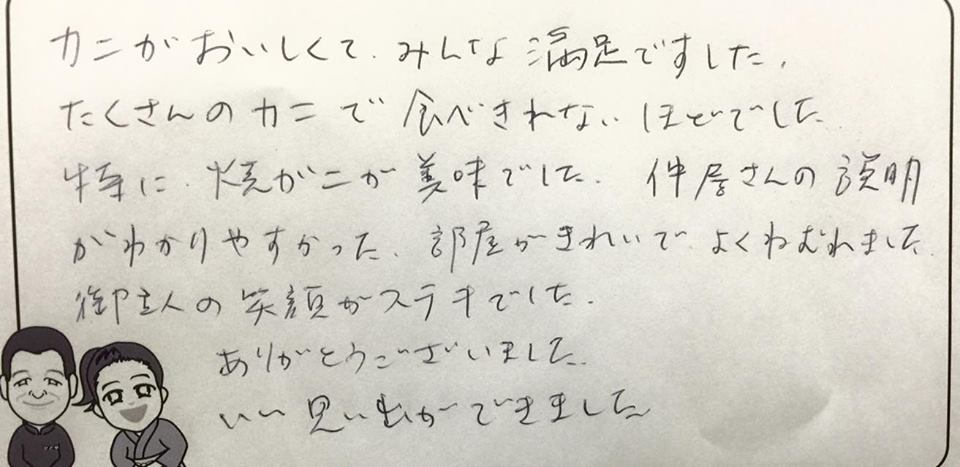 カニがおいしくて、みんな満足ですした。
たくさんのカニで食べきれないほどでした
特に、焼がニが美味でした。仲居さんの説明
がわかりやすかった、部屋がきれいで、よくねむれました
御主人の笑顔がステキでした。
ありがとうございました。
いい思い出ができました